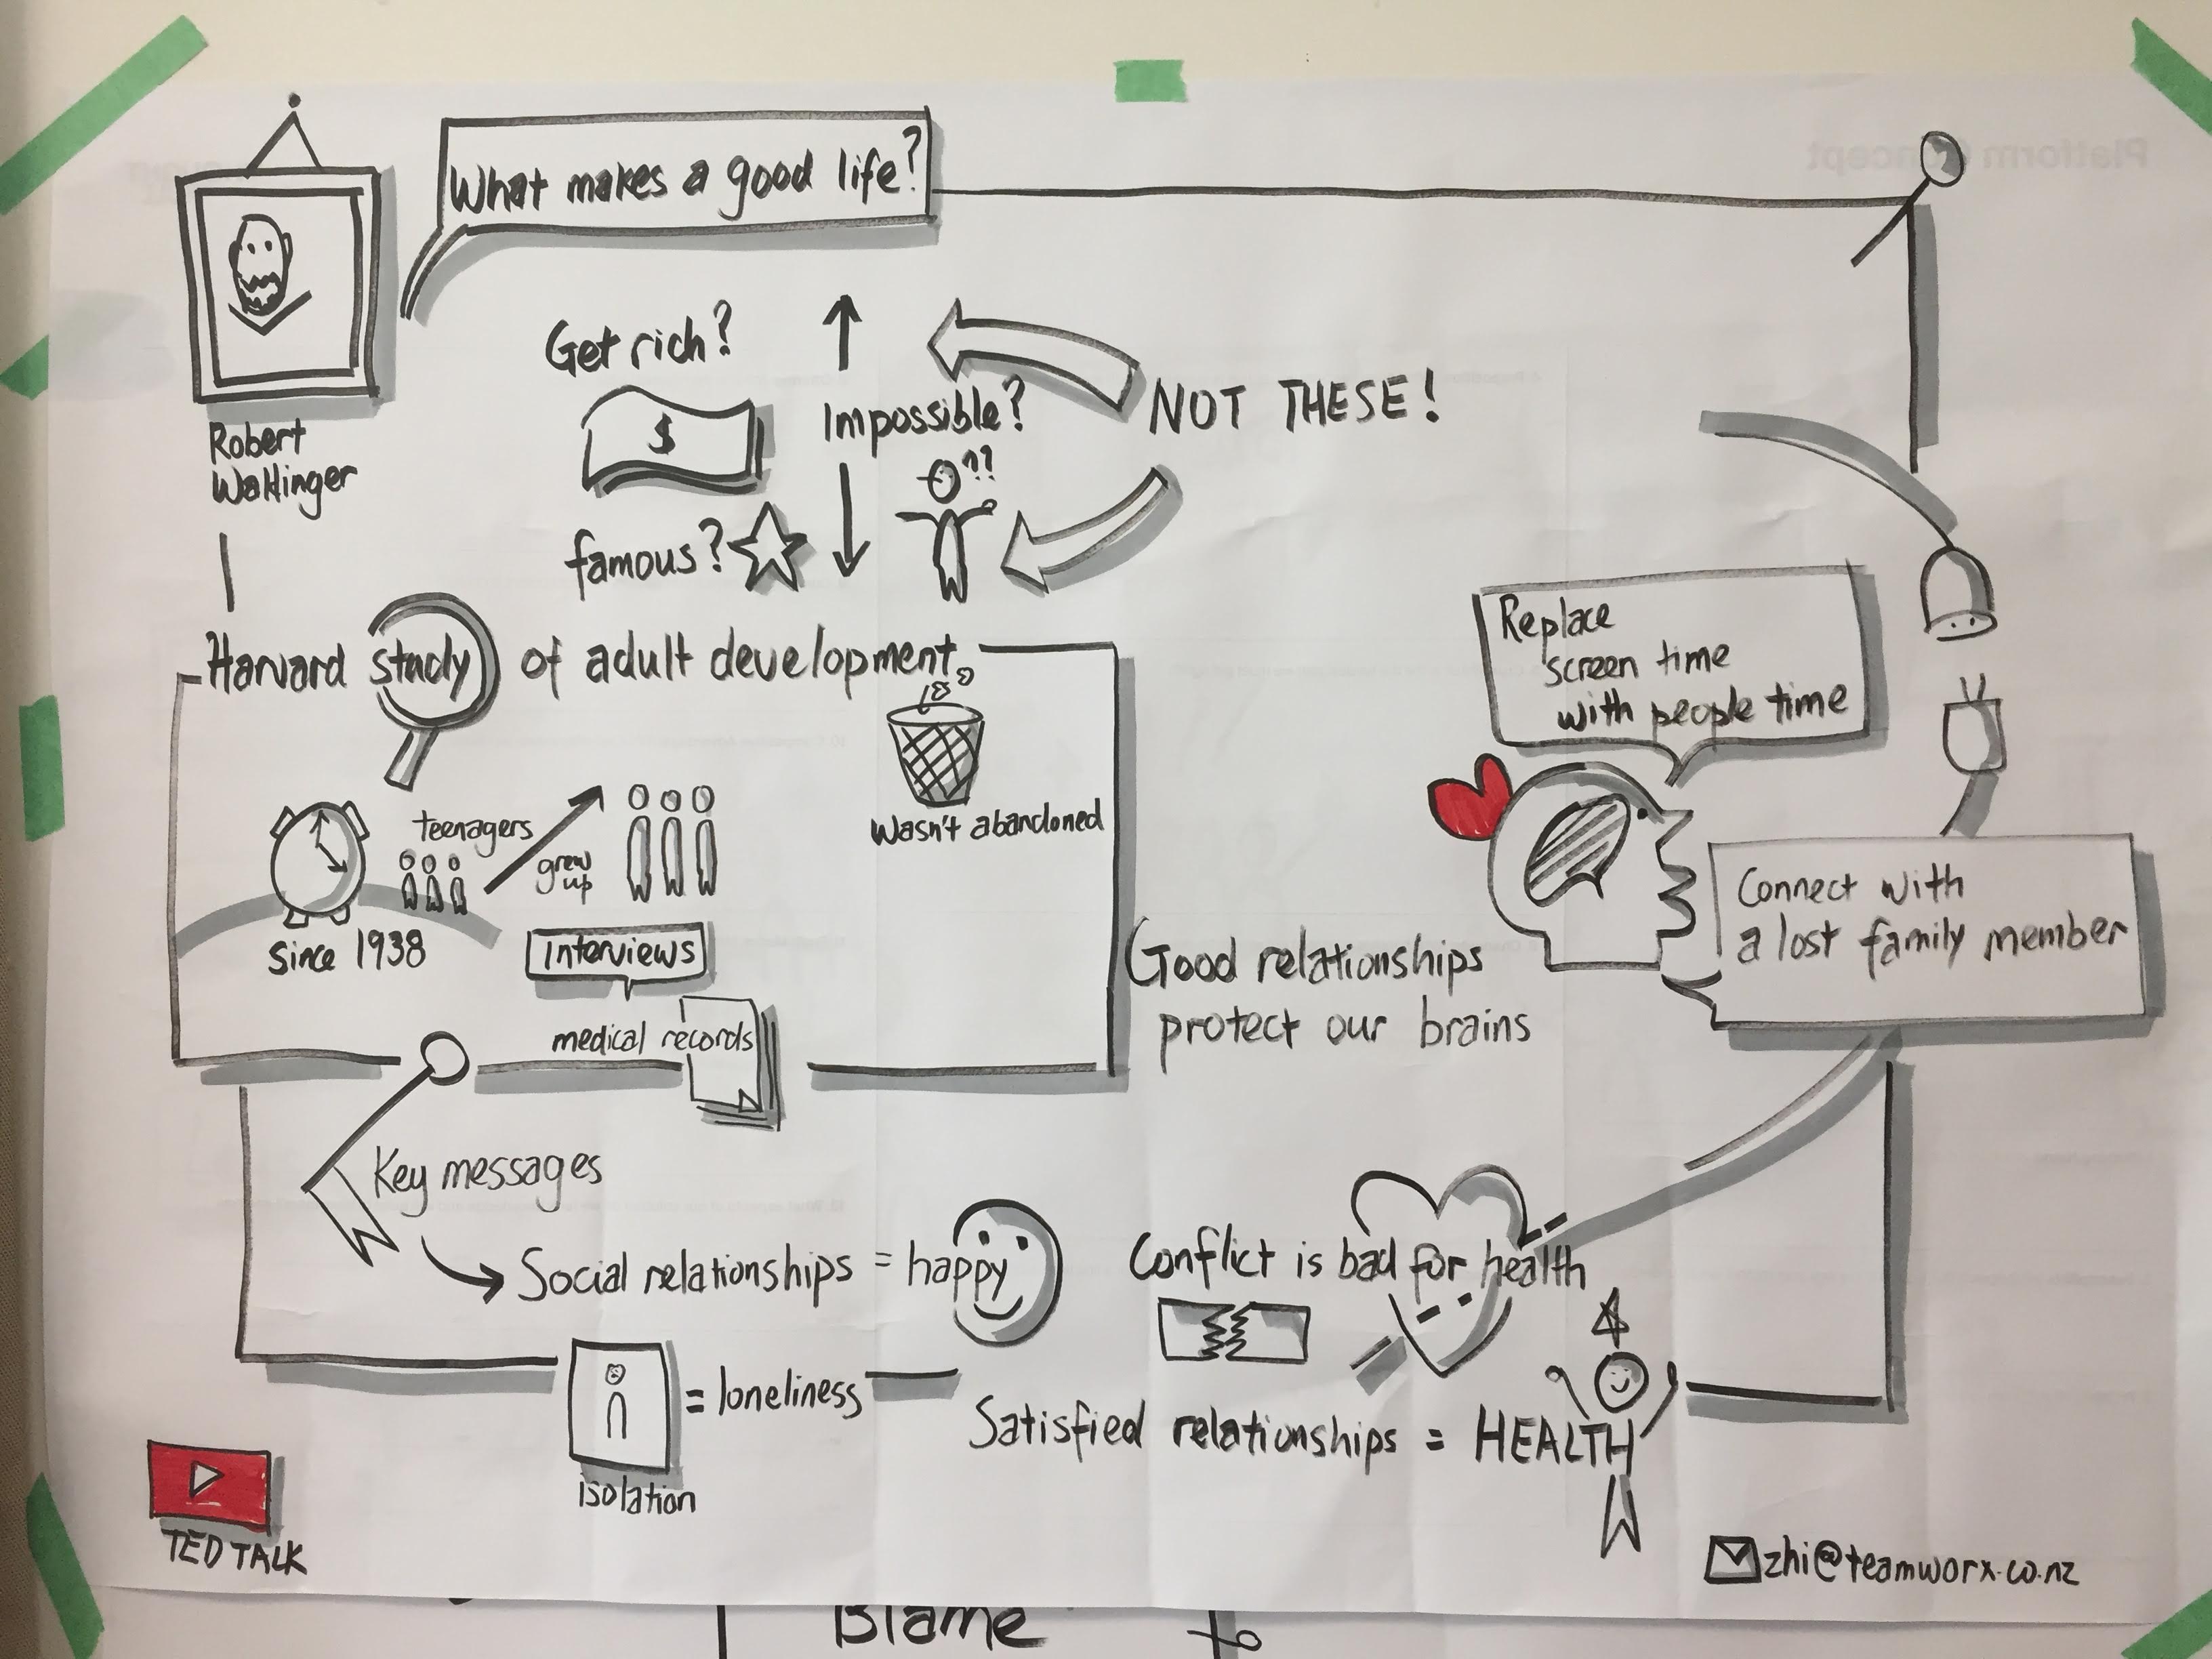 What makes a good life?
Robert
Waldinger
Get rich?
$
Impossible?
??
famous?
NOT THESE!
Harvard study of adult development
Since 1938
teenagers
grew
up
Interviews
medical records
Wasn't abandoned
Replace
screen time
with people time
Connect with
a lost family member
Good relationships
protect our brains
Key messages
Social relationships = happy
= loneliness
isolation
Conflict is bad for health
Satisfied relationships = HEALTH
TED TALK
zhi@teamworx.co.nz
Blame
Platform Concept